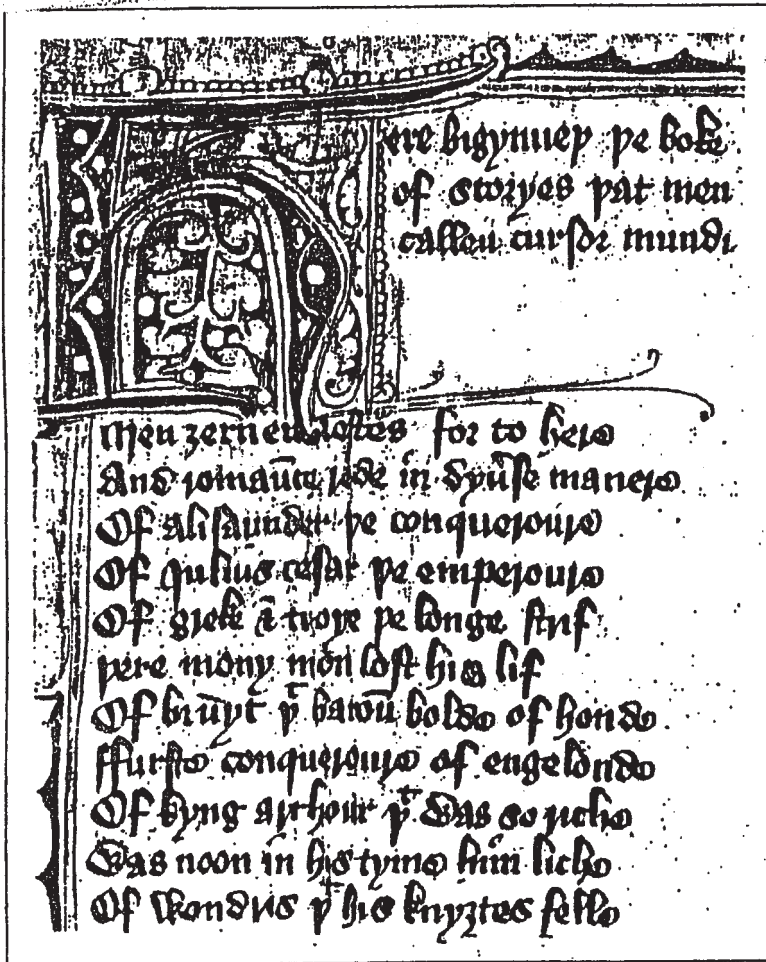 Here bigynneþ þe boke
of storyes þat men
callen cursor mundi
Men ȝernen iestes for to here
And romaūce rede in dyuse manere
Of alisaunder þe conqueroure
Of Iulius cesar þe emperoure
Of greke & troye þe longe strif
þere mony mon lost his lif
Of bruyt þͭ baroū bolde of honde
ffurste conqueroure of engelonde
Of kyng arthour þͭ was so riche
Was noon in his tyme him liche
Of wondris þͭ his knyȝtes felle